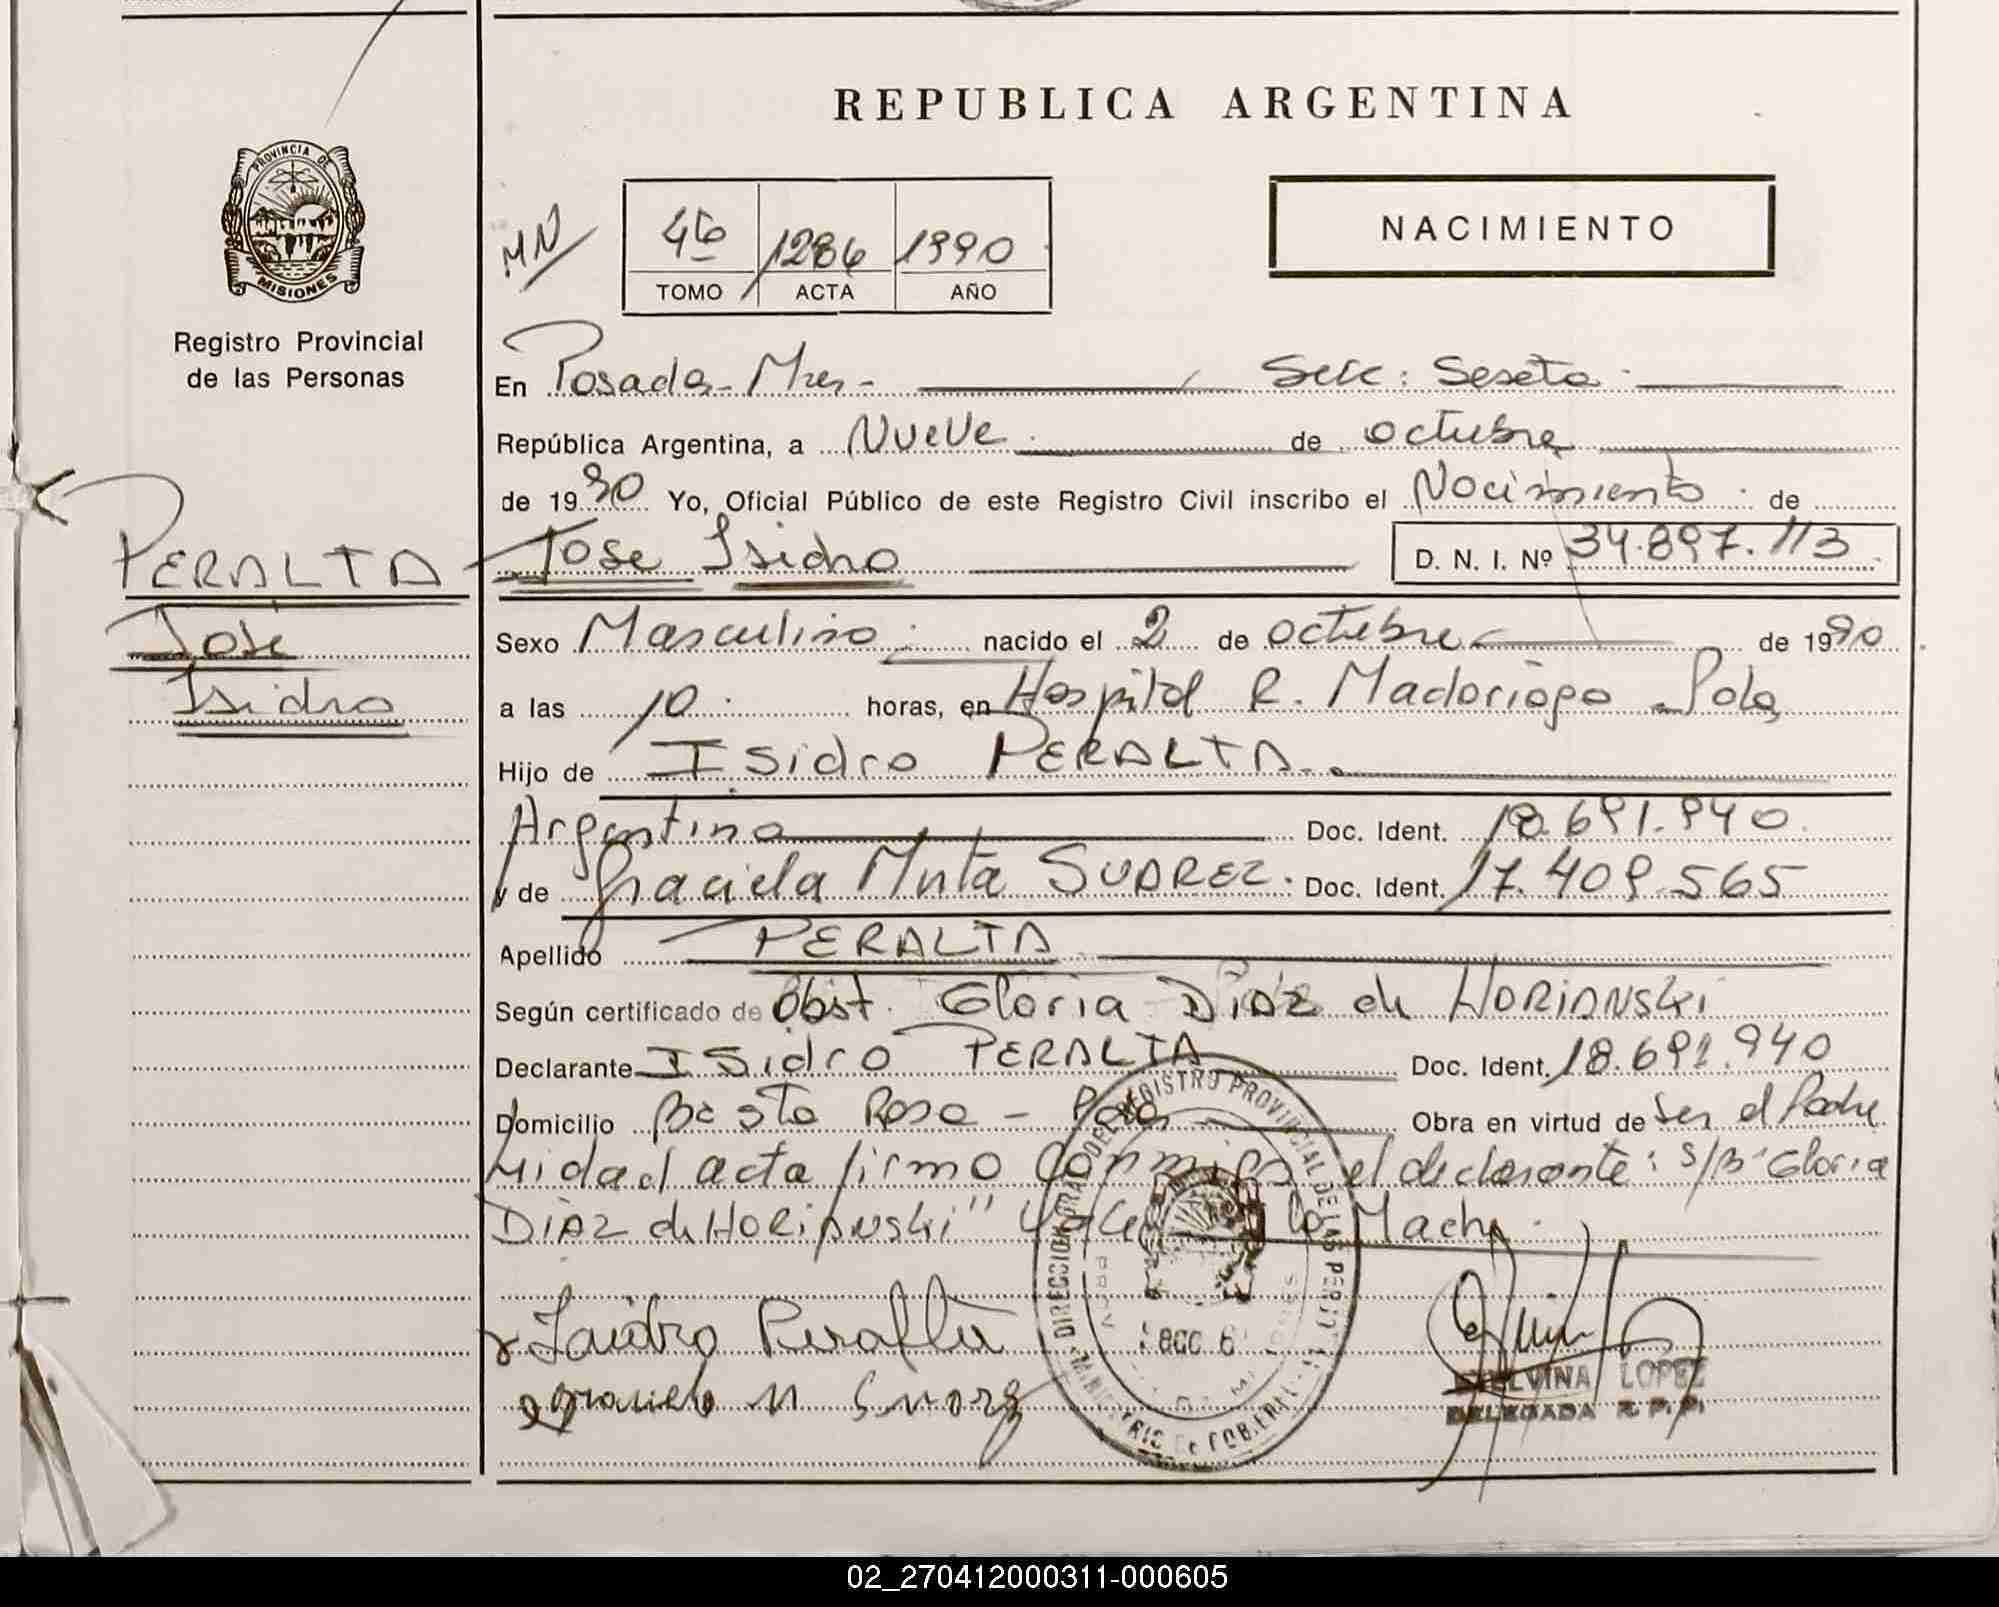 REPUBLICA ARGENTINA
PROVINCIA DE
MISIONES
Registro Provincial
de las Personas
NACIMIENTO
MN
46 1286 1990
TOMO ACTA AÑO
En Posadas - Mnes - Secc: Sexta
República Argentina, a Nueve de octubre
de 1990 Yo, Oficial Público de este Registro Civil inscribo el Nacimiento de
PERALTA
José
Isidro
Jose Isidro D. N. I. Nº 34.897.113
Sexo Masculino nacido el 2 de octubre de 1990
a las 10 horas, en Hospital R. Madariaga Pdas
Hijo de Isidro PERALTA
Argentina Doc. Ident. 18.691.940
y de Graciela Mirta SUAREZ Doc. Ident. 17.409.565
Apellido PERALTA
Según certificado de Obst. Gloria DIAZ de HORIANSKI
Declarante Isidro PERALTA Doc. Ident. 18.691.940
Domicilio Bº Sta Rosa - Pdas Obra en virtud de Ser el Padre
Leida el acta firma conmigo el declarante: S/B "Gloria
DIAZ de HORIANSKI" Vale
Isidro Peralta
LOPEZ
DELEGADA R. P. P.
REGISTRO PROVINCIAL DE LAS PERSONAS
02_270412000311-000605